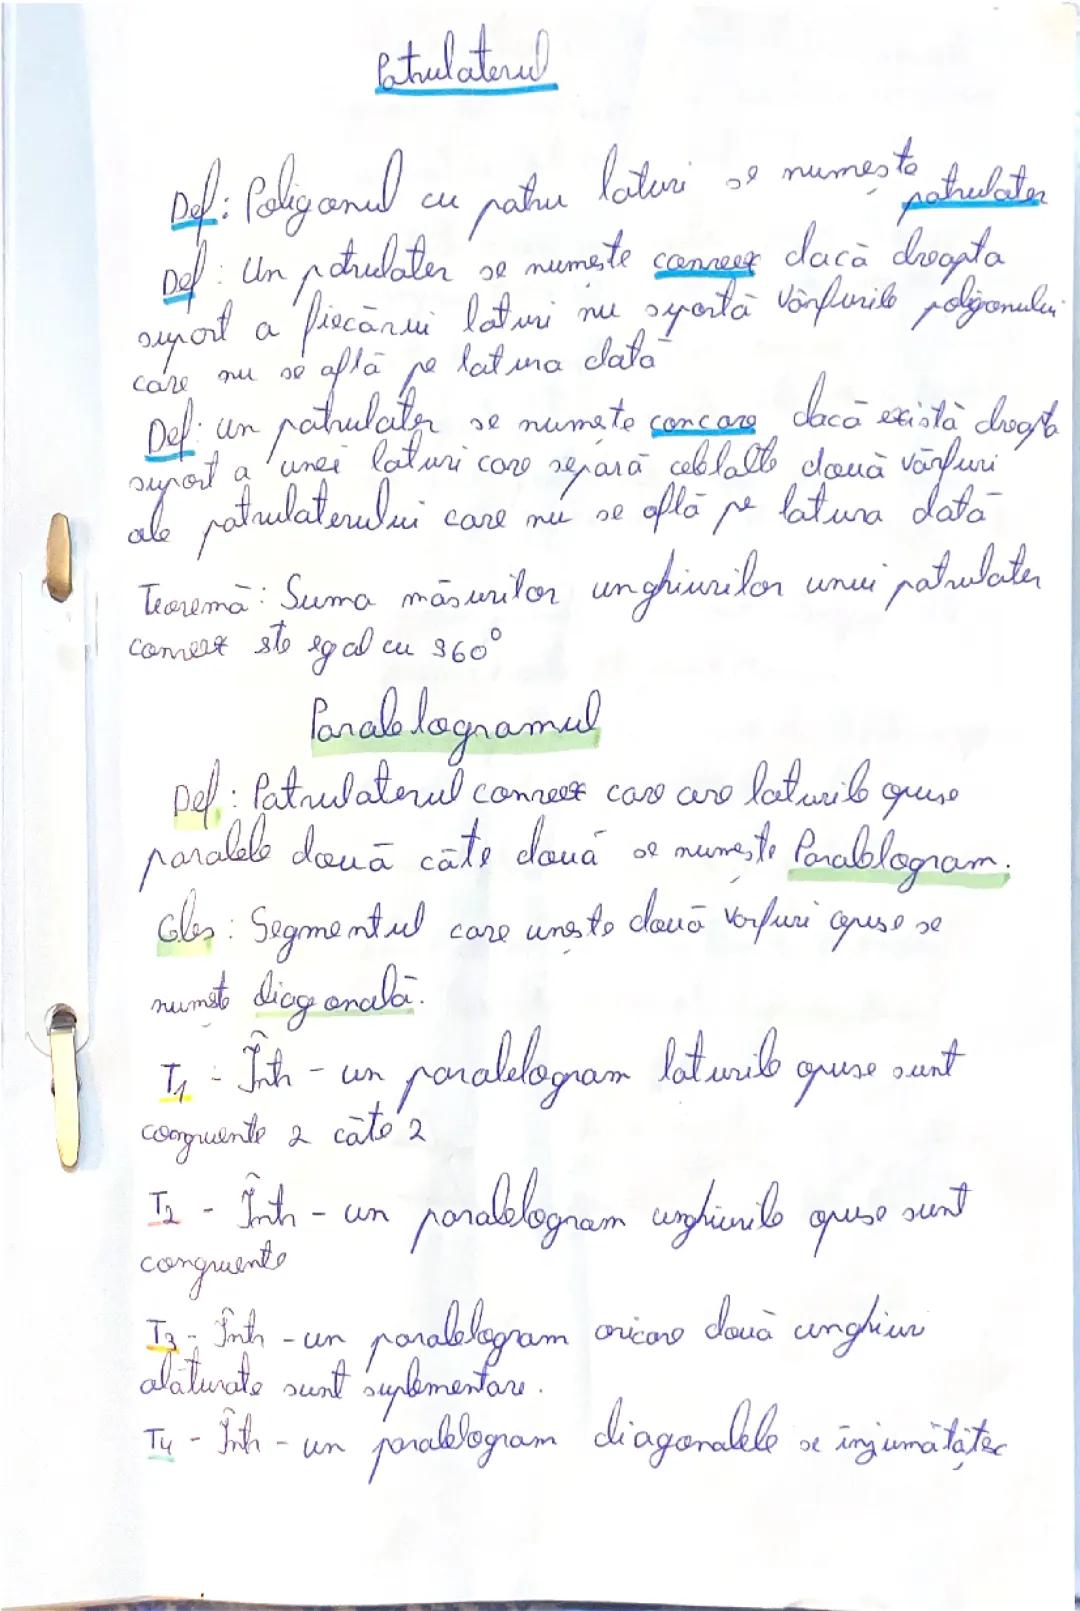 Patrulaterul
Def: Poligonul cu patru laturi se numește patrulater
Def: Un patrulater se numește convex dacă dreapta
suport a fiecărui laturi nu sportă vârfurile poligonului
care nu se află pe latura dată
Def: un patrulater se numește concave dacă există dreapta
suport a unei laturi care separă celelalte două vârfuri
ale patrulaterului care nu se află pe latura dată
Teoremă: Suma măsurilor unghiurilor unui patrulater
convex ste egal cu 360°
Paralelogramul
Def: Patrulaterul convex care are laturile opuse
paralele două câte două se numește Paralelogram.
Obs: Segmentul care unește două vârfuri opuse se
numește diagonală.
T1 - Într-un paralelogram laturile opuse sunt
congruente 2 câte 2
T2 - Într-un paralelogram unghiurile opuse sunt
congruente
T3 - Într-un paralelogram oricare două unghiuri
alăturate sunt suplementare.
T4 - Într-un paralelogram diagonalele se înjumătățesc